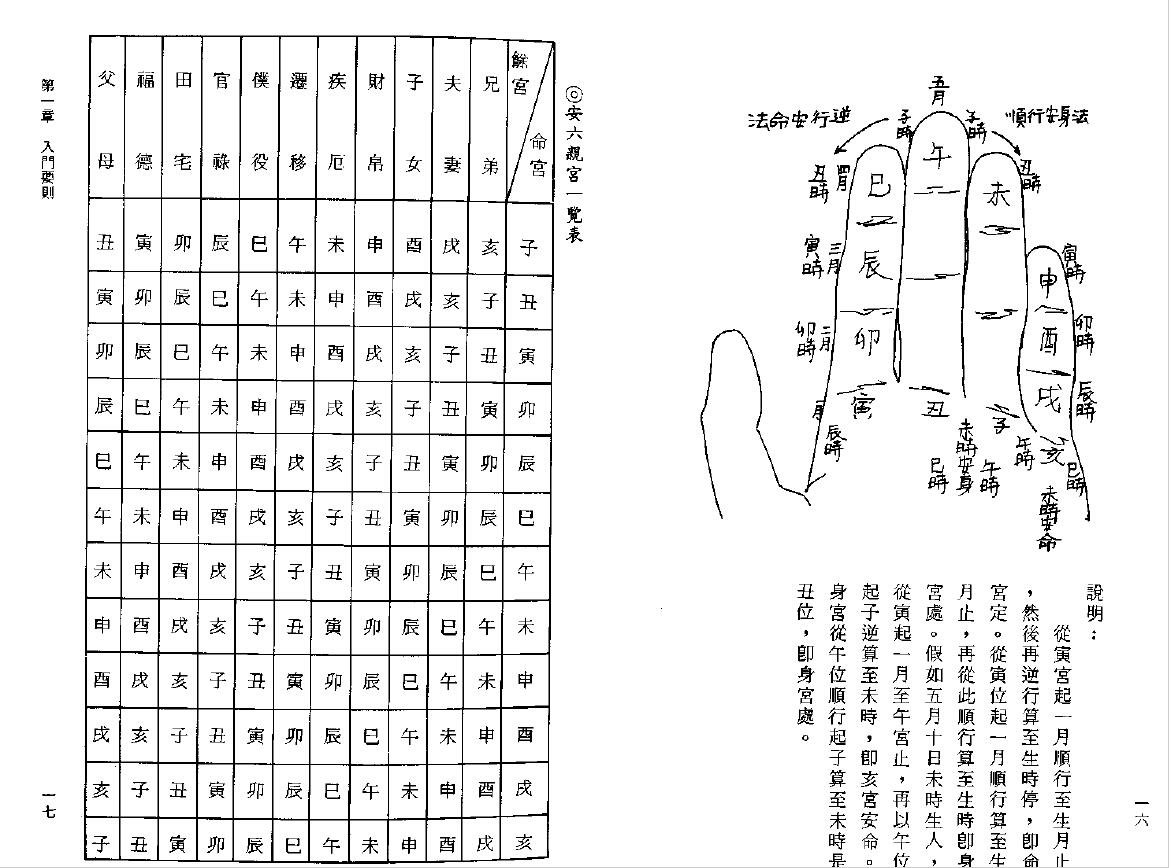 順行安身法
逆行安命法
五月
子時
子時
丑時
寅時
卯時
辰時
巳時
午時
未時安命
丑時
四月
寅時
三月
卯時
二月
辰時
一月
巳時
午時
未時安身
午
未
巳
申
辰
酉
卯
戌
寅
丑
子
亥
說明:
從寅宮起一月順行至生月止
,然後再逆行算至生時停,卽命
宮定。從寅位起一月順行算至生
月止,再從此順行算至生時卽身
宮處。假如五月十日未時生人,
從寅起一月至午宮止,再以午位
起子逆算至未時,卽亥宮安命。
身宮從午位順行起子算至未時是
丑位,卽身宮處。
一六
◎安六親宮一覽表
餘宮
命宮 子 丑 寅 卯 辰 巳 午 未 申 酉 戌 亥
兄弟 亥 子 丑 寅 卯 辰 巳 午 未 申 酉 戌
夫妻 戌 亥 子 丑 寅 卯 辰 巳 午 未 申 酉
子女 酉 戌 亥 子 丑 寅 卯 辰 巳 午 未 申
財帛 申 酉 戌 亥 子 丑 寅 卯 辰 巳 午 未
疾厄 未 申 酉 戌 亥 子 丑 寅 卯 辰 巳 午
遷移 午 未 申 酉 戌 亥 子 丑 寅 卯 辰 巳
僕役 巳 午 未 申 酉 戌 亥 子 丑 寅 卯 辰
官祿 辰 巳 午 未 申 酉 戌 亥 子 丑 寅 卯
田宅 卯 辰 巳 午 未 申 酉 戌 亥 子 丑 寅
福德 寅 卯 辰 巳 午 未 申 酉 戌 亥 子 丑
父母 丑 寅 卯 辰 巳 午 未 申 酉 戌 亥 子
第一章 入門要則
一七